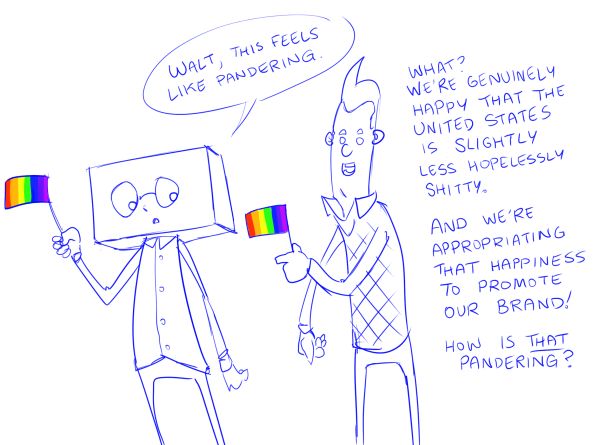 WALT, THIS FEELS
LIKE PANDERING.
WHAT?
WE'RE GENUINELY
HAPPY THAT THE
UNITED STATES
IS SLIGHTLY
LESS HOPELESSLY
SHITTY.
AND WE'RE
APPROPRIATING
THAT HAPPINESS
TO PROMOTE
OUR BRAND!
HOW IS THAT
PANDERING?